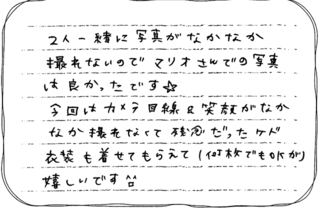 2人一緒に写真がなかなか
撮れないのでマリオさんでの写真
は良かったです☆
今回はカメラ目線&笑顔がなか
なか撮れなくて残念だったケド
衣装も着せてもらえて(何枚でもOKが)
嬉しいです^^